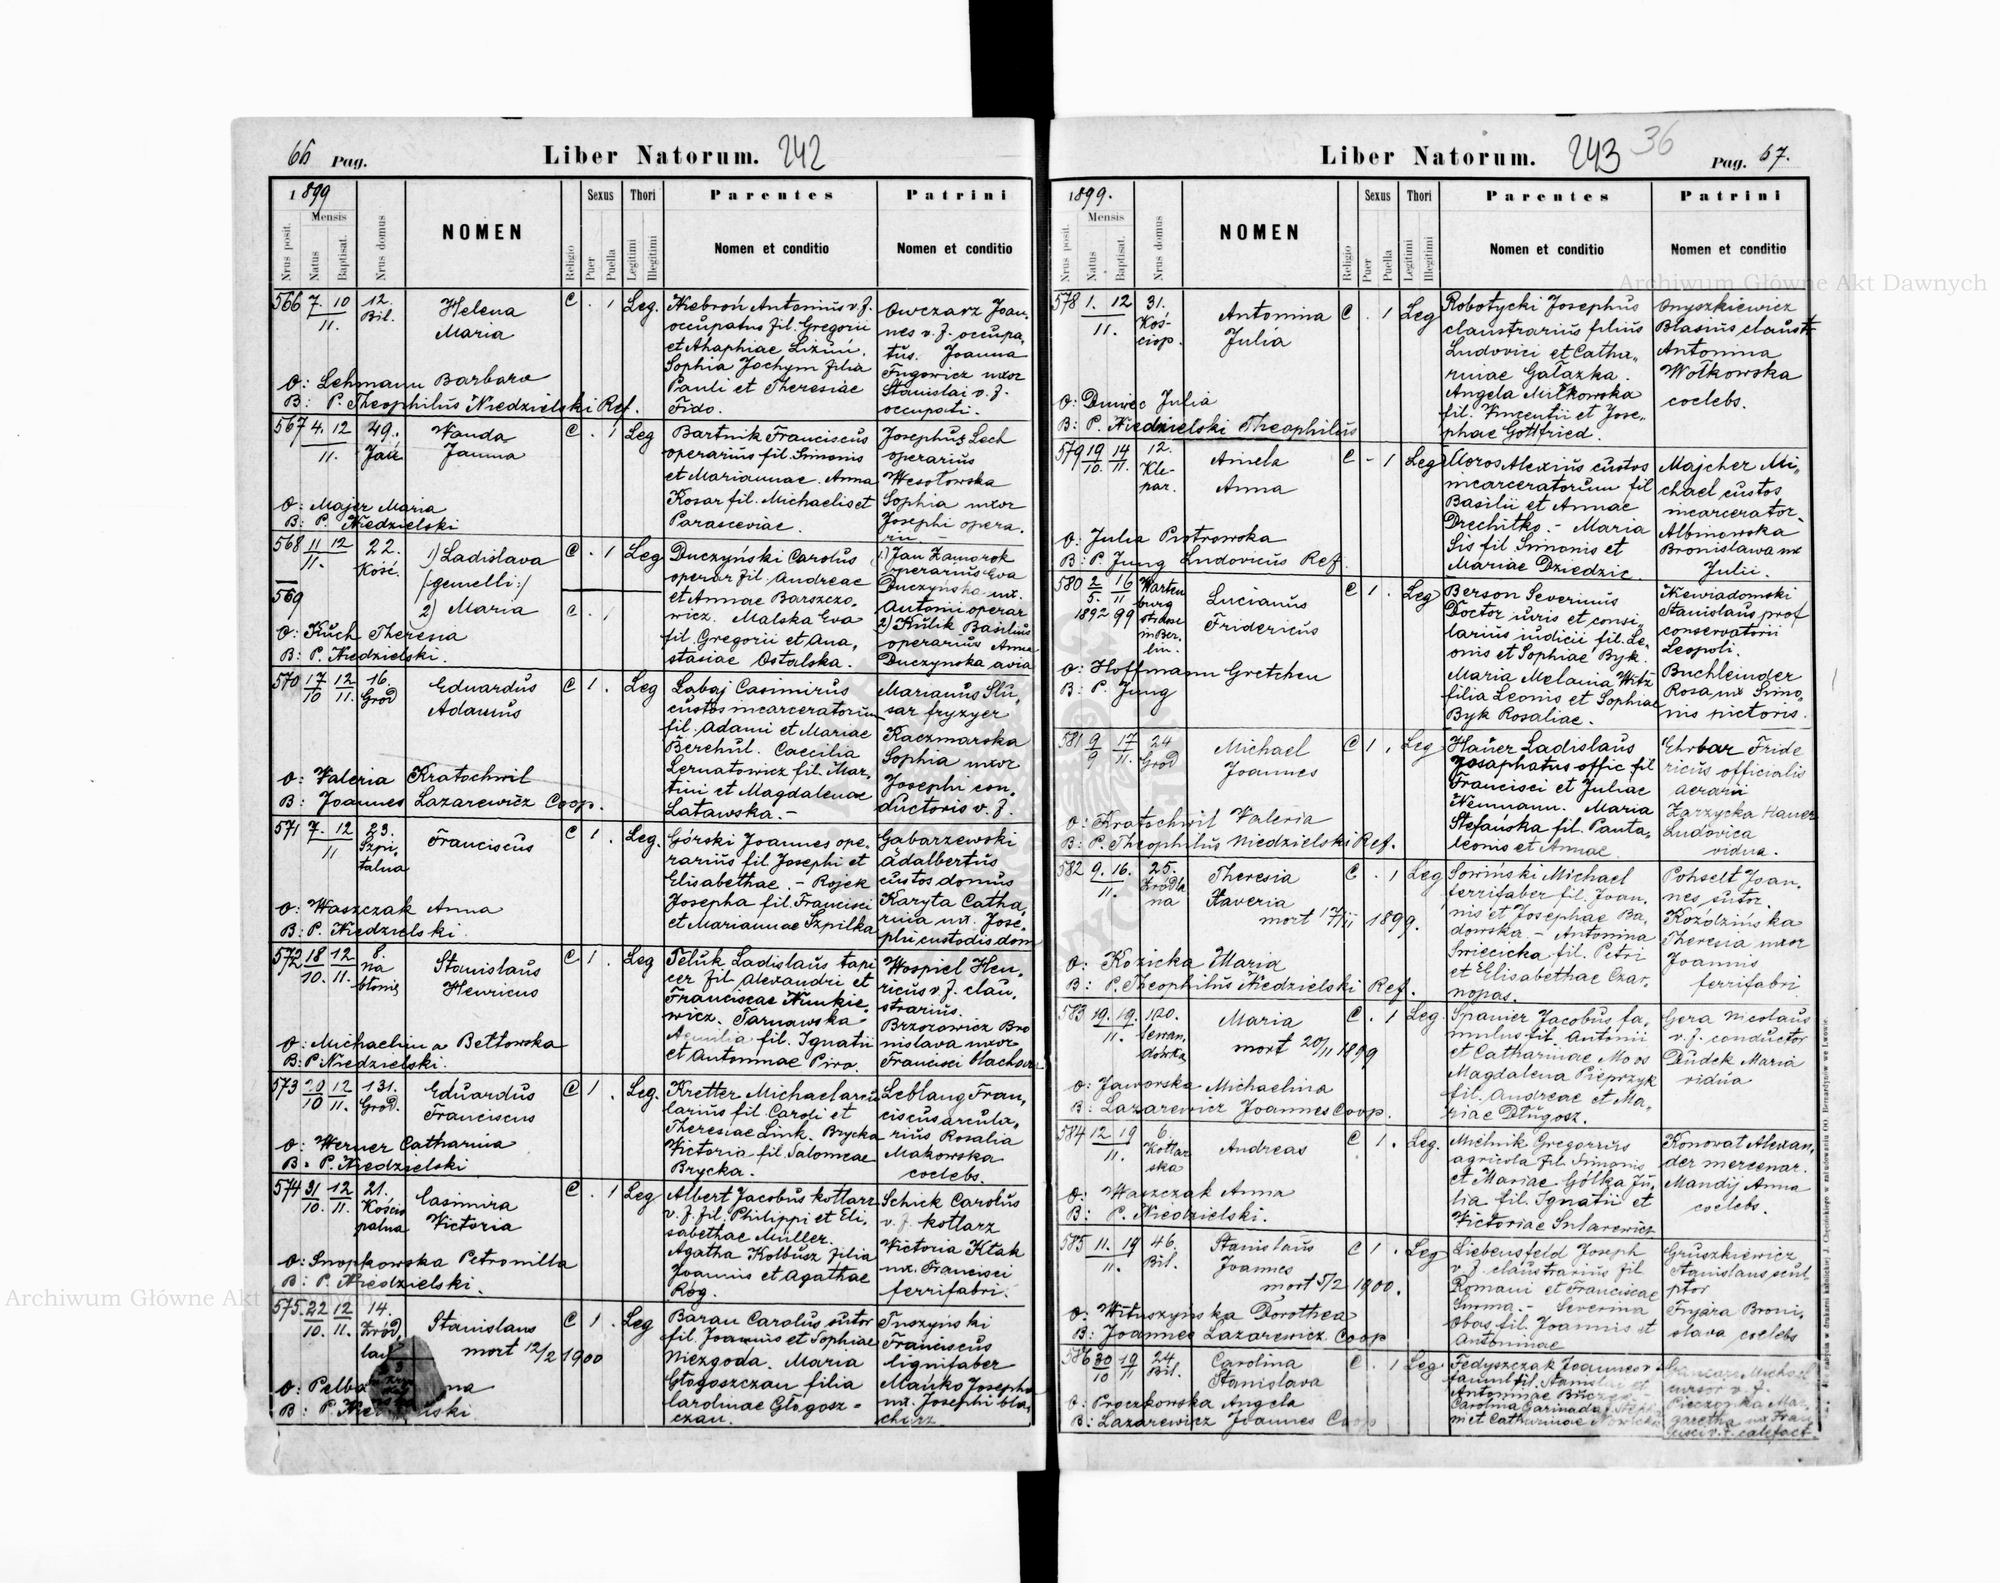 66 Pag.
Liber Natorum. 242
1899
Mensis
Nrus posit.
Natus
Baptisat.
Nrus domus
NOMEN
Religio
Sexus
Puer
Puella
Thori
Legitimi
Illegitimi
Parentes
Nomen et conditio
Patrini
Nomen et conditio
566 7. 10 12. Helena C . 1 Leg.
11. Bil. Maria
Niebroń Antonius v. f.
occupatus fil. Gregorii
et Ahaphiae Liziń.
Sophia Jochym filia
Pauli et Theresiae
Fido.
Owczarz Joan-
nes v. f. occupa-
tus. Joanna
Fugowicz uxor
Stanislai v. f.
occupati.
O: Lehmann Barbara
B: P. Theophilus Niedzielski Ref.
567 4. 12 49. Wanda C . 1 Leg
11. Jan Janina
Bartnik Franciscus
operarius fil. Simonis
et Mariannae. Anna
Kosar fil. Michaelis et
Parasceviae.
Josephus Lech
operarius
Wesołowska
Sophia uxor
Josephi opera-
rii.
O: Majer Maria
B: P. Niedzielski
568 11 12 22. 1) Ladislava C . 1 Leg
11. Kość. /gemelli:/
569 2) Maria C .
Duczyński Carolus
operar fil. Andreae
et Annae Barszczo-
wicz. Malska Eva
fil. Gregorii et Ana-
stasiae Ostalska.
1) Jan Zamorok
operarius Eva
Duczyńska ux.
Antonii operar
2) Kulik Basilius
operarius Anna
Duczynska avia
O: Kuch Theresia
B: P. Niedzielski.
570 17 12 16. Eduardus C 1 . Leg
10 11. Gród Adamus
Labaj Casimirus
custos incarceratorum
fil. Adami et Mariae
Berehul. Caecilia
Lernatowicz fil. Mar-
tini et Magdalenae
Latawska. -
Marianus Slu-
sar fryzyer
Kaczmarska
Sophia uxor
Josephi con-
ductoris v. f.
O: Valeria Kratochwil
B: Joannes Lazarewicz Coop.
571 7. 12 23. Franciscus C 1 . Leg.
11 Szpi-
talna
Górski Joannes ope-
rarius fil Josephi et
Elisabethae. - Rojek
Josepha fil. Francisci
et Mariannae Szpilka
Gabarzewski
Adalbertus
custos domus
Karyta Catha-
rina ux. Jose-
phi custodis dom
O: Waszczak Anna
B: P. Niedzielski.
572 18 12 8. Stanislaus C 1 . Leg
10. 11. na Henricus
błonie
Teluk Ladislaus tapi
cer fil Alexandri et
Franciscae Nunkie-
wicz. Tarnawska
fil. Ignatii
et Antoninae Piro.
Wospiel Hen-
ricus v. f. clau-
strarius.
Brzozowicz Bro
nislava uxor
Francisci
O: Michaelina Bettowska
B: P. Niedzielski.
573 20 12 131. Eduardus C 1 . Leg.
10 11. Gród. Franciscus
Kretter Michael arcu
larius fil Caroli et
Theresiae Link. Brycka
Victoria fil. Salomeae
Brycka.
Leblang Fran-
ciscus arcula-
rius Rosalia
Makowska
coelebs.
O: Werner Catharina
B: P. Niedzielski
574 31 12 21. Casimira C . 1 Leg
10. 11. Kościu Victoria
palna
Albert Jacobus kotlarz
v. f. fil. Philippi et Eli-
sabethae Müller.
Agatha Kolbusz filia
Joannis et Agathae
Róg.
Schick Carolus
v. f. kotlarz
Victoria Ktak
ux. Francisci
ferrifabri.
O: Snopkowska Petronilla
B: P. Niedzielski.
575. 22 12 14. Stanislaus C 1 . Leg
10. 11. Źród. mort 12/2 1900
Baran Carolus sutor
fil. Joannis et Sophiae
Niezgoda. Maria
Głogoszczan filia
Carolinae Głogosz-
czan.
Tuszyński
Franciscus
lignifaber
Mańko Josepha
ux. Josephi bla-
charz
O: Pelba na
B: P. Nie ski
Liber Natorum. 243 36
Pag. 67.
1899.
Mensis
Nrus posit.
Natus
Baptisat.
Nrus domus
NOMEN
Religio
Sexus
Puer
Puella
Thori
Legitimi
Illegitimi
Parentes
Nomen et conditio
Patrini
Nomen et conditio
578 1. 12 31. Antonina C . 1 Leg
11. Koś- Julia
ciop.
Robotycki Josephus
claustrarius filius
Ludovici et Catha-
rinae Gałazka.
Angela Miłkowska
fil. Vincentii et Jose-
phae Gottfried.
Onyszkiewicz
Blasius claustr
Antonina
Wołkowska
coelebs.
O: Duwiec Julia
B: P. Niedzielski Theophilus
579 19 14 12. Aniela C - 1 Leg
10. 11. Kle- Anna
par.
Moros Alexius custos
incarceratorum fil
Basilii et Annae
Drechitko. - Maria
Sis fil Simonis et
Mariae Dziedzic.
Majcher Mi-
chael custos
incarcerator.
Albinowska
Bronislawa ux
Julii.
O: Julia Piotrowska
B: P. Jung Ludovicus Ref.
580 2 16 Warten Lucianus C 1 . Leg
5. 11 burg Fridericus
1892 99 strasse
in Ber-
lin.
Berson Severinus
Doctor iuris et consi-
liarius iudicii fil. Le-
onis et Sophiae Byk.
Maria Melania Witz
filia Leonis et Sophiae
Byk Rosaliae.
Niewiadomski
Stanislaus prof
conservatorii
Leopoli.
Buchbinder
Rosa ux Simo-
nis pictoris.
O: Hoffmann Gretchen
B: P. Jung
581 9 17 24 Michael C 1 . Leg
9 11. Gród Joannes
Hauer Ladislaus
Josaphatus offic fil
Francisci et Juliae
Neumann. Maria
Stefańska fil. Panta-
leonis et Annae.
Ehrbar Fride
ricus officialis
aerarii
Zarzycka Hauer
Ludovica
vidua.
O: Kratochwil Valeria
B: P. Theophilus Niedzielski Ref.
582 9. 16. 25. Theresia C . 1 Leg
11. Źródla Xaveria
na mort 17/11 1899.
Sowiński Michael
ferrifaber fil. Joan-
nis et Josephae Ba-
dowska. - Antonina
Swiecicka fil. Petri
et Elisabethae Czar-
nopas.
Pohselt Joan-
nes sutor.
Koździńska
Theresia uxor
Joannis
ferrifabri
O: Kozicka Maria
B: P. Theophilus Niedzielski Ref.
583 19. 19. 120. Maria C . 1 Leg.
11. Lewan mort 20/11 1899
dówka
Spanier Jacobus fa-
mulus fil. Antonii
et Catharinae Moos
Magdalena Pieprzyk
fil. Andreae et Ma-
riae Długosz.
Gera Nicolaus
v. f. conductor
Dudek Maria
vidua
O: Jaworska Michaelina
B: Lazarewicz Joannes Coop.
584 12 19 6. Andreas C 1 . Leg.
11. Kotlar
ska
Mielnik Gregorius
agricola fil. Simonis
et Mariae Gólka Ju-
lia fil. Ignatii et
Victoriae
Konovat Alexan-
der mercenar.
Mandij Anna
coelebs.
O: Waszczak Anna
B: P. Niedzielski.
585 11. 19 46. Stanislaus C 1 . Leg
11. Bil. Joannes
mort 5/2 1900.
Liebensfeld Joseph
v. f. claustrarius fil
Romani et Franciscae
Surma. - Severina
Obas fil. Joannis et
Antoninae
Gruszkiewicz
Stanislaus scul
ptor
Fujara Broni-
slava coelebs
O: Wituszyńska Dorothea
B: Joannes Lazarewicz Coop
586 30 19 24 Carolina C . 1 Leg
10 11 Bil. Stanislava
Fedyszczak Joannes v
famul fil. Stanislai et
Antoninae
Carolina Garinada f. Steph
ni et Catharinae
Michael
cursor v. f.
Pieczonka Mar-
garetha ux Fran
cisci v. f. calefact.
O: Proczkowska Angela
B: Lazarewicz Joannes Coop
Archiwum Główne Akt Dawnych
Archiwum Główne Akt Dawnych